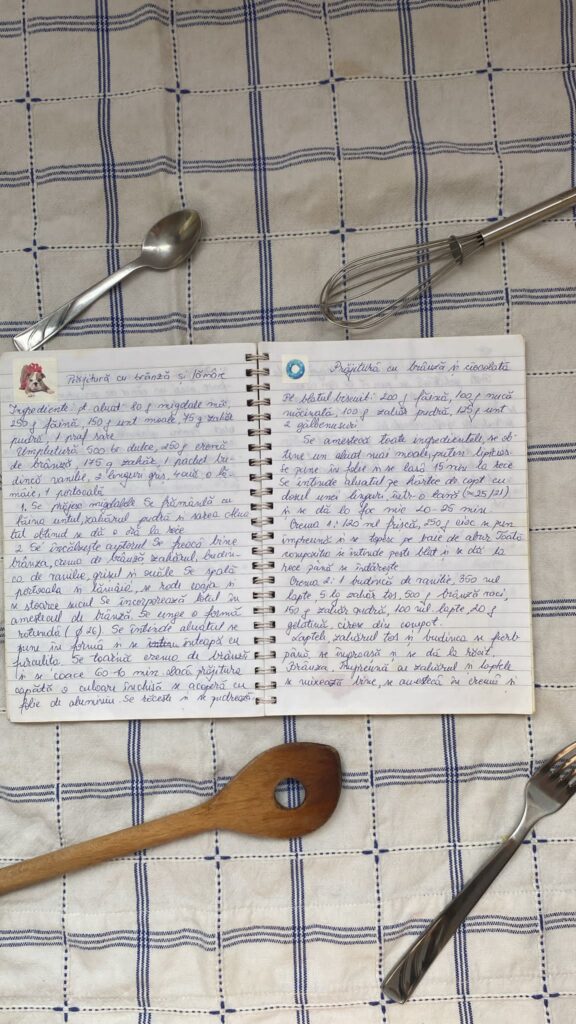 Prăjitură cu brânză și lămâie
Ingrediente: pt aluat: 80 g migdale măr,
250 g făină, 150 g unt moale, 75 g zahăr
pudră, 1 praf sare
Umplutură 500 br dulce, 250 g cremă
de brânză, 175 g zahăr, 1 pachet bu-
dincă vanilie, 2 linguri griș, ouă, o lă-
mâie, 1 portocală
1. Se prăjesc migdalele Se frământă cu
făina untul, zahărul pudră și sarea Alua
tul obținut se dă o oră la rece
2. Se încălzește cuptorul Se freacă bine
brânza, crema de brânză zahărul, budin-
ca de vanilie, grișul și ouăle Se spală
portocala și lămâia, se rade coaja și
se stoarce sucul Se încorporează totul în
amestecul de brânză. Se unge o formă
rotundă (Ø 26) Se întinde aluatul se
pune în formă și se înteapă cu
furculița Se toarnă crema de brânză
și se coace 60-70 min dacă prăjitura
capătă o culoare închisă se acoperă cu
folie de aluminiu Se răcește și se pudrează
Prăjitură cu brânză și ciocolată
Pt blatul biscuit: 200 g făină, 100 g nucă
măcinată, 100 g zahăr pudră, 125 g unt
2 gălbenușuri
Se amestecă toate ingredientele, se ob-
ține un aluat mai moale, puțin lipicios.
Se pune în folie și se lasă 15 min la rece
Se întinde aluatul pe hârtie de copt cu
dosul unei linguri, într-o tavă (≈ 25/21)
și se dă la foc mic 20-25 min
Crema 1: 120 ml frișcă, 250 g cioc se pun
împreună și se topesc pe baie de abur Toată
compoziția se întinde peste blat și se dă la
rece până se întărește
Crema 2: 1 budincă de vanilie, 350 ml
lapte 5 lg zahăr tos, 500 g brânză vaci,
150 g zahăr pudră, 100 ml lapte 20 g
gelatină, cireșe din compot.
Laptele, zahărul tos și budinca se fierb
până, se îngroașă și se dă la răcit.
Brânza. Împreună cu zahărul și laptele
se mixează bine, se amestecă în cremă și